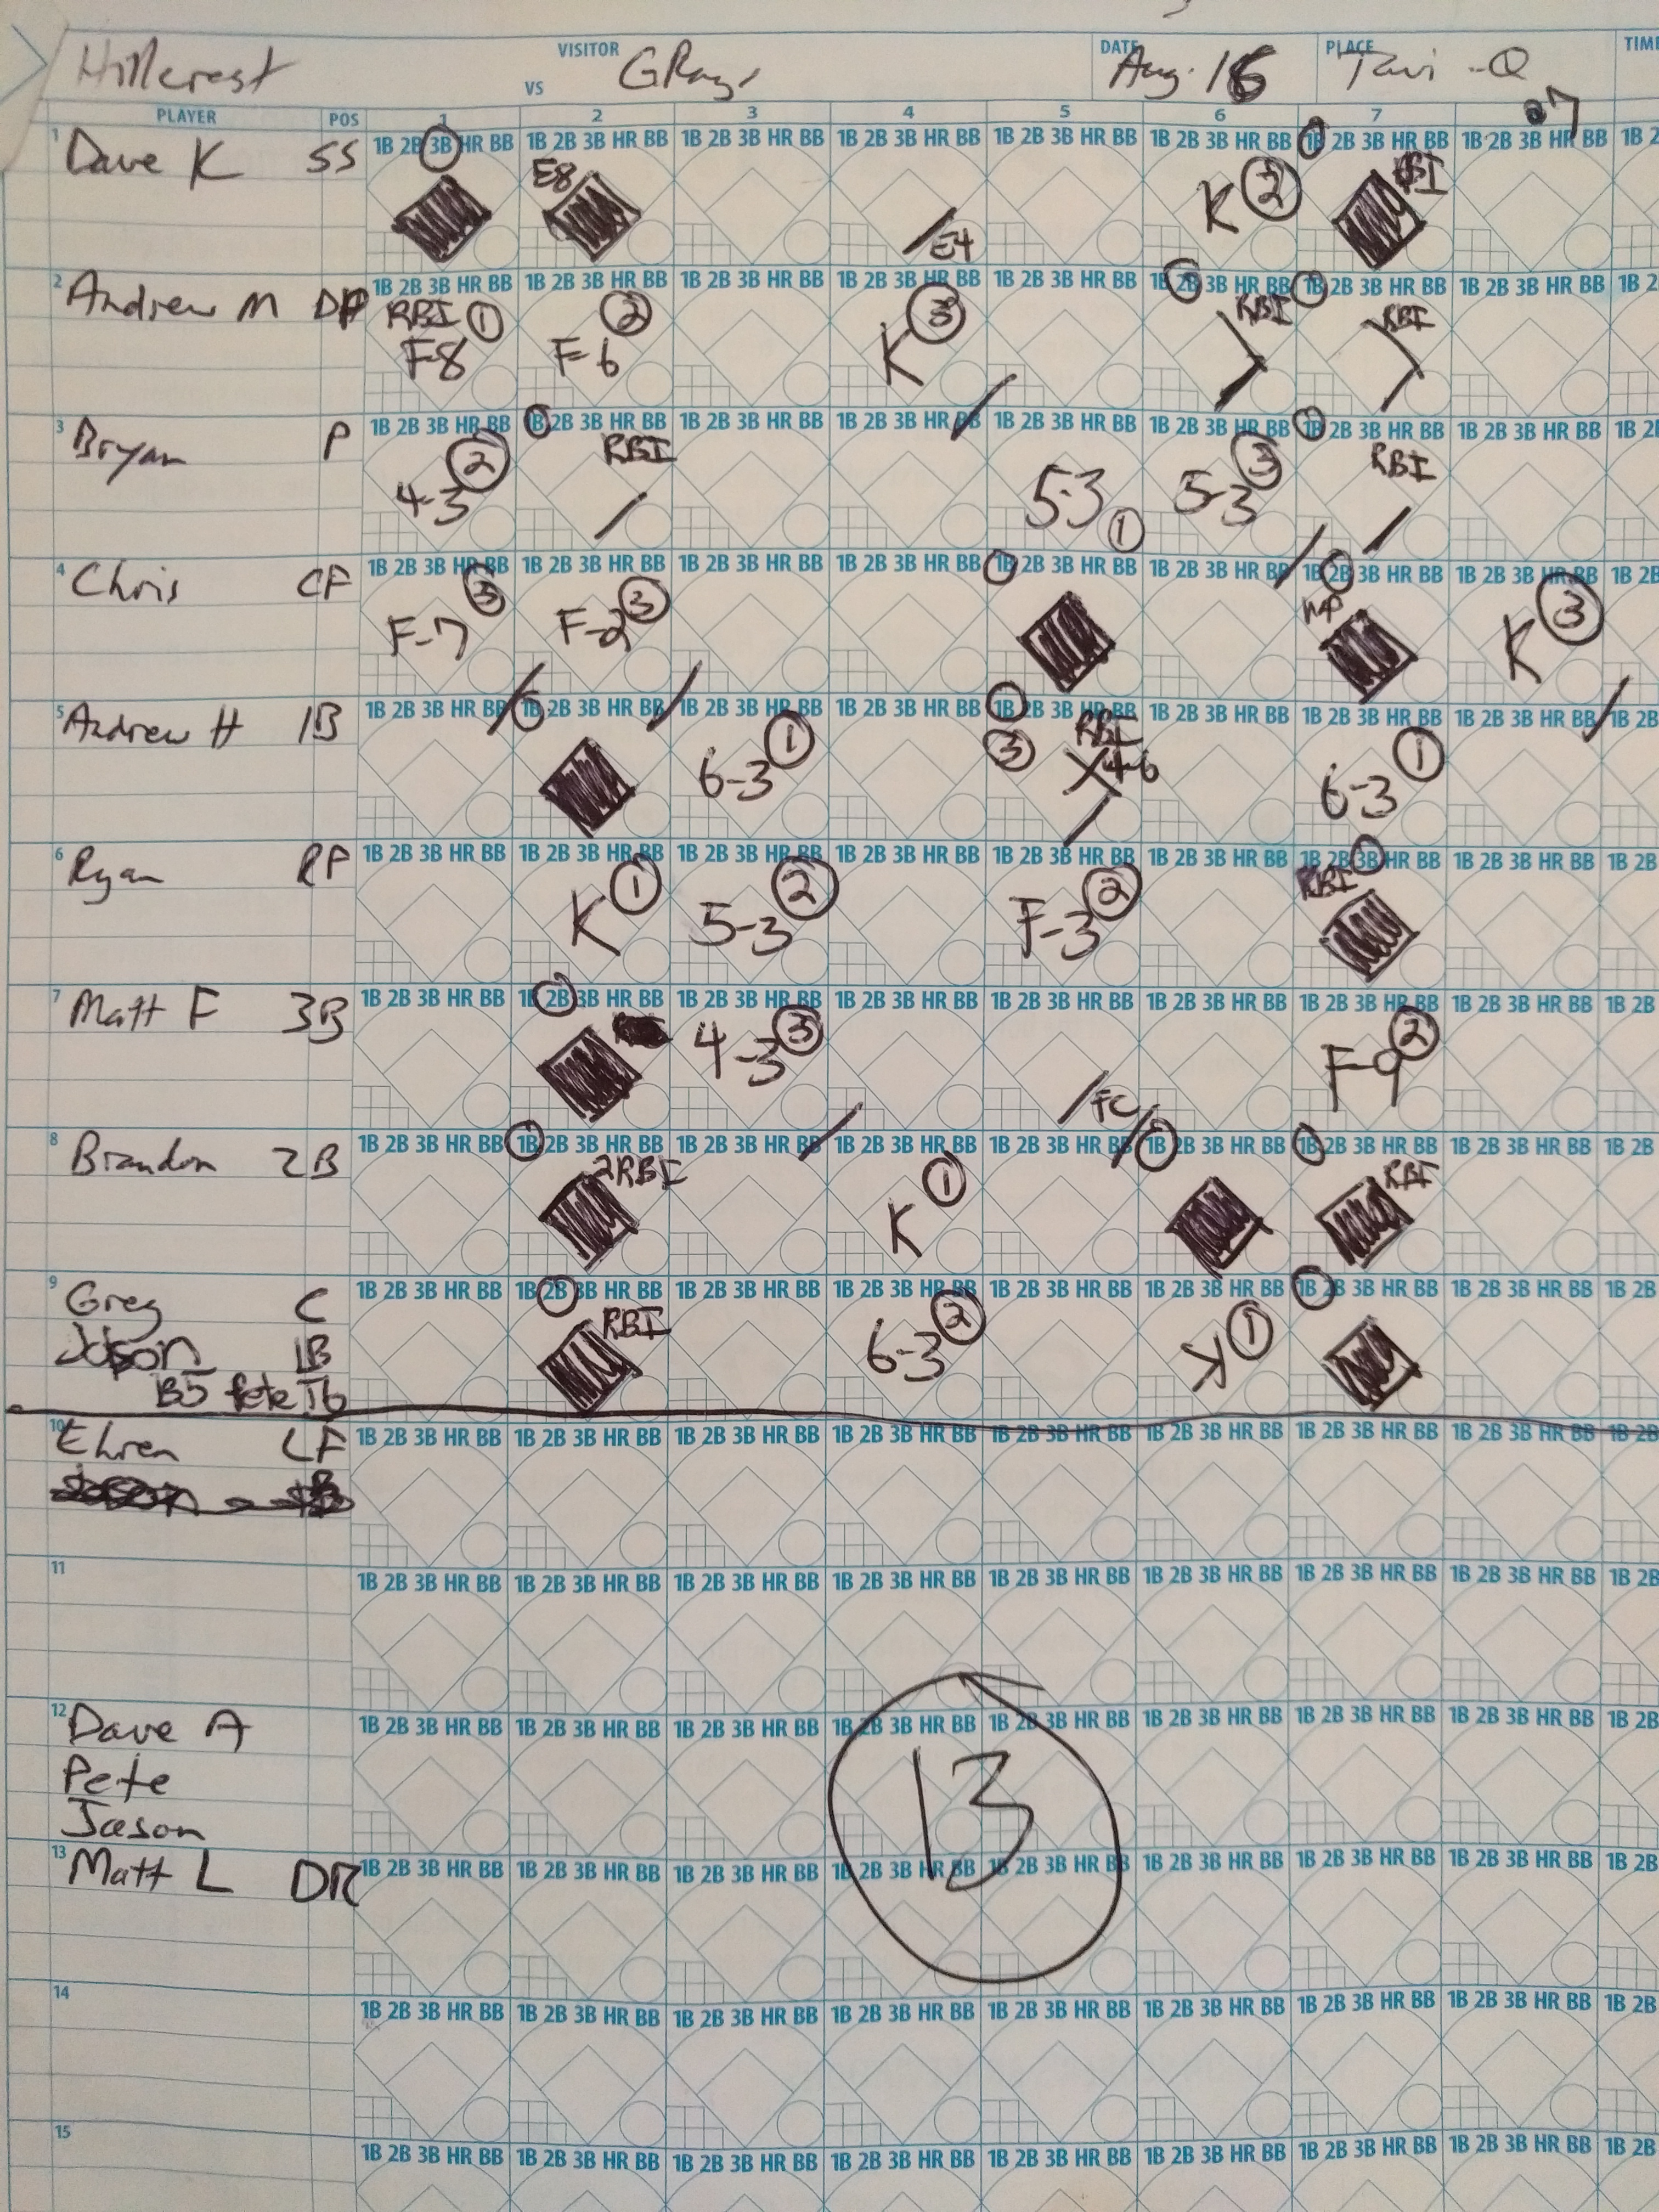 Hillcrest VISITOR VS GRays DATE Aug. 16 PLACE Tavi-Q TIME
PLAYER POS 1 2 3 4 5 6 7 07
1 Dave K SS 1B 2B 3B HR BB 1B 2B 3B HR BB 1B 2B 3B HR BB 1B 2B 3B HR BB 1B 2B 3B HR BB 1B 2B 3B HR BB 1B 2B 3B HR BB 1B 2B 3B HR BB 1B 2
E8 E4 K 2 RBI
2 Andrew M 1B 2B 3B HR BB 1B 2B 3B HR BB 1B 2B 3B HR BB 1B 2B 3B HR BB 1B 2B 3B HR BB 1B 2B 3B HR BB 1B 2B 3B HR BB 1B 2B 3B HR BB 1B 2
RBI 1 F-8 F-6 2 K 3 RBI RBI
3 Bryan P 1B 2B 3B HR BB 1B 2B 3B HR BB 1B 2B 3B HR BB 1B 2B 3B HR BB 1B 2B 3B HR BB 1B 2B 3B HR BB 1B 2B 3B HR BB 1B 2B 3B HR BB 1B 2B
4-3 2 RBI 5-3 1 5-3 3 RBI
4 Chris CF 1B 2B 3B HR BB 1B 2B 3B HR BB 1B 2B 3B HR BB 1B 2B 3B HR BB 1B 2B 3B HR BB 1B 2B 3B HR BB 1B 2B 3B HR BB 1B 2B 3B HR BB 1B 2B
F-7 3 F-2 3 WP K 3
5 Andrew H 1B 1B 2B 3B HR BB 1B 2B 3B HR BB 1B 2B 3B HR BB 1B 2B 3B HR BB 1B 2B 3B HR BB 1B 2B 3B HR BB 1B 2B 3B HR BB 1B 2B 3B HR BB 1B 2B
6-3 1 3 RBI 4-6 6-3 1
6 Ryan RF 1B 2B 3B HR BB 1B 2B 3B HR BB 1B 2B 3B HR BB 1B 2B 3B HR BB 1B 2B 3B HR BB 1B 2B 3B HR BB 1B 2B 3B HR BB 1B 2B 3B HR BB 1B 2B
K 1 5-3 2 F-3 2 RBI
7 Matt F 3B 1B 2B 3B HR BB 1B 2B 3B HR BB 1B 2B 3B HR BB 1B 2B 3B HR BB 1B 2B 3B HR BB 1B 2B 3B HR BB 1B 2B 3B HR BB 1B 2B 3B HR BB 1B 2B
4-3 3 FC F-9 2
8 Brandon 2B 1B 2B 3B HR BB 1B 2B 3B HR BB 1B 2B 3B HR BB 1B 2B 3B HR BB 1B 2B 3B HR BB 1B 2B 3B HR BB 1B 2B 3B HR BB 1B 2B 3B HR BB 1B 2B
2RBI K 1 RBI
9 Greg C 1B 2B 3B HR BB 1B 2B 3B HR BB 1B 2B 3B HR BB 1B 2B 3B HR BB 1B 2B 3B HR BB 1B 2B 3B HR BB 1B 2B 3B HR BB 1B 2B 3B HR BB 1B 2B
Jason 1B RBI 6-3 2 K 1
B5 Pete T6
10 Ehren LF 1B 2B 3B HR BB 1B 2B 3B HR BB 1B 2B 3B HR BB 1B 2B 3B HR BB 1B 2B 3B HR BB 1B 2B 3B HR BB 1B 2B 3B HR BB 1B 2B 3B HR BB 1B 2B
11 1B 2B 3B HR BB 1B 2B 3B HR BB 1B 2B 3B HR BB 1B 2B 3B HR BB 1B 2B 3B HR BB 1B 2B 3B HR BB 1B 2B 3B HR BB 1B 2B 3B HR BB 1B 2B
12 Dave A 1B 2B 3B HR BB 1B 2B 3B HR BB 1B 2B 3B HR BB 1B 2B 3B HR BB 1B 2B 3B HR BB 1B 2B 3B HR BB 1B 2B 3B HR BB 1B 2B 3B HR BB 1B 2B
Pete 13
Jason
13 Matt L DR 1B 2B 3B HR BB 1B 2B 3B HR BB 1B 2B 3B HR BB 1B 2B 3B HR BB 1B 2B 3B HR BB 1B 2B 3B HR BB 1B 2B 3B HR BB 1B 2B 3B HR BB 1B 2B
14 1B 2B 3B HR BB 1B 2B 3B HR BB 1B 2B 3B HR BB 1B 2B 3B HR BB 1B 2B 3B HR BB 1B 2B 3B HR BB 1B 2B 3B HR BB 1B 2B 3B HR BB 1B 2B
15 1B 2B 3B HR BB 1B 2B 3B HR BB 1B 2B 3B HR BB 1B 2B 3B HR BB 1B 2B 3B HR BB 1B 2B 3B HR BB 1B 2B 3B HR BB 1B 2B 3B HR BB 1B 2B